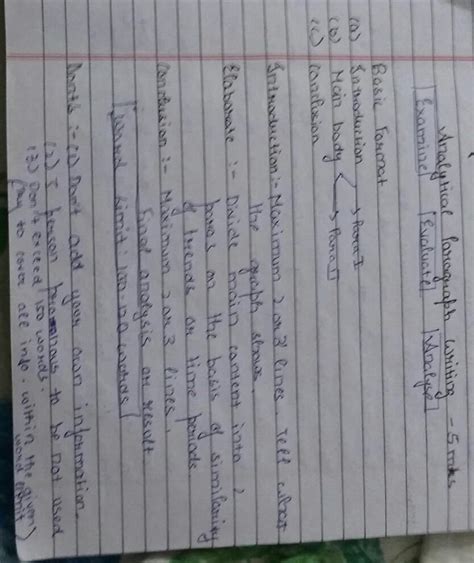 Analytical Paragraph Writing - 5 mks
[Examine] [Evaluate] [Analyse]
Basic Format
(a) Introduction
(b) Main body → Para I
→ Para II
(c) Conclusion
Introduction :- Maximum 2 or 3 lines. Tell what
the graph shows.
Elaborate :- Divide main content into 2
paras on the basis of similarity
of trends or time periods
Conclusion :- Maximum 2 or 3 lines.
Final analysis or result
[Word Limit: 100-120 words]
Don'ts :- (1) Don't add your own information.
(2) I person pronouns to be not used
(3) Don't exceed 150 words.
(Try to cover all info. within the given
word limit)